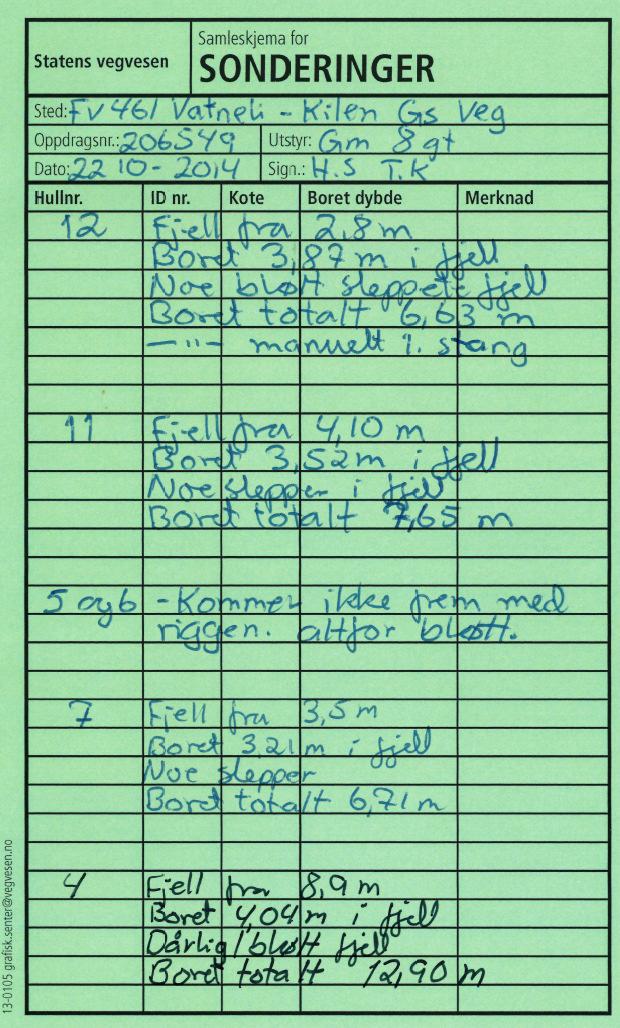 Statens vegvesen
Samleskjema for
SONDERINGER
Sted: FV 461 Vatneli - Kilen Gs Veg
Oppdragsnr.: 206549 Utstyr: Gm 8 gt
Dato: 22 10 - 2014 Sign.: H.S T.K
Hullnr. ID nr. Kote Boret dybde Merknad
12 Fjell fra 2,8 m
Boret 3,87 m i fjell
Noe bløtt sleppete fjell
Boret totalt 6,63 m
—"— manuelt 1. stang
11 Fjell fra 4,10 m
Boret 3,52 m i fjell
Noe slepper i fjell
Boret totalt 7,65 m
5 og 6 - Kommer ikke frem med
riggen. altfor bløtt.
7 Fjell fra 3,5 m
Boret 3,21 m i fjell
Noe slepper
Boret totalt 6,71 m
4 Fjell fra 8,9 m
Boret 4,04 m i fjell
Dårlig / bløtt fjell
Boret totalt 12,90 m
13-0105 grafisk.senter@vegvesen.no